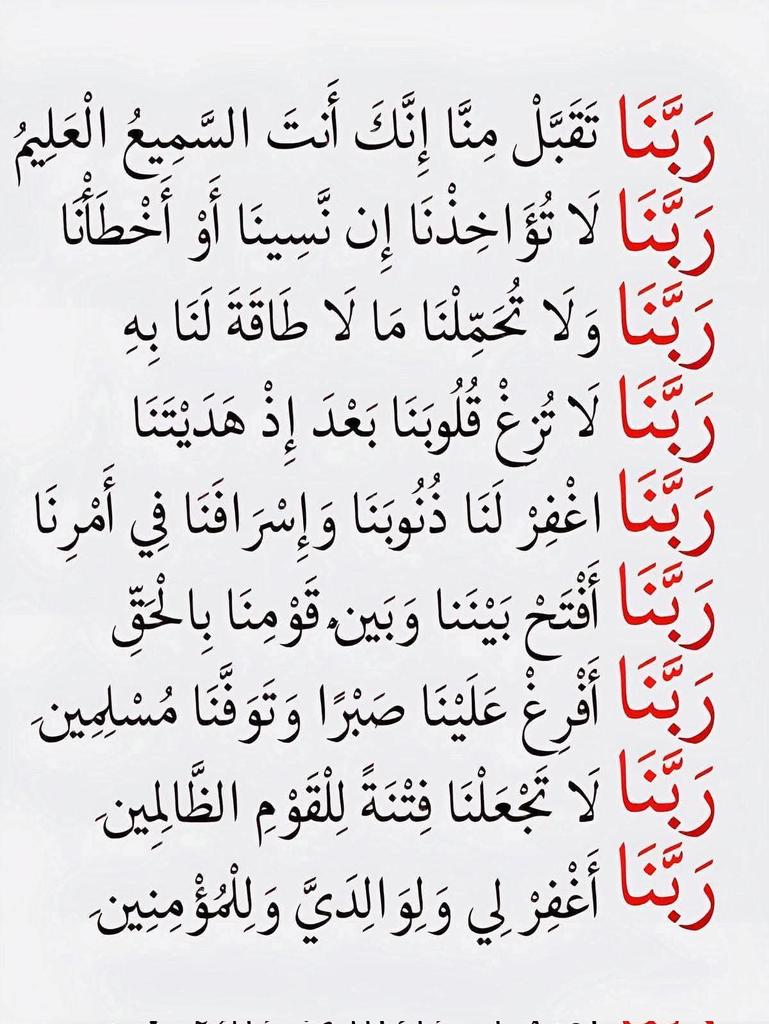 رَبَّنَا تَقَبَّلْ مِنَّا إِنَّكَ أَنتَ السَّمِيعُ الْعَلِيمُ
رَبَّنَا لَا تُؤَاخِذْنَا إِن نَّسِينَا أَوْ أَخْطَأْنَا
رَبَّنَا وَلَا تُحَمِّلْنَا مَا لَا طَاقَةَ لَنَا بِهِ
رَبَّنَا لَا تُزِغْ قُلُوبَنَا بَعْدَ إِذْ هَدَيْتَنَا
رَبَّنَا اغْفِرْ لَنَا ذُنُوبَنَا وَإِسْرَافَنَا فِي أَمْرِنَا
رَبَّنَا أَفْتَحْ بَيْنَنا وَبَينَ قَوْمِنَا بِالْحَقِّ
رَبَّنَا أَفْرِغْ عَلَيْنَا صَبْرًا وَتَوَفَّنَا مُسْلِمِينَ
رَبَّنَا لَا تَجْعَلْنَا فِتْنَةً لِلْقَوْمِ الظَّالِمِينَ
رَبَّنَا أَغْفِرْ لِي وَلِوَالِدَيَّ وَلِلْمُؤْمِنِينَ